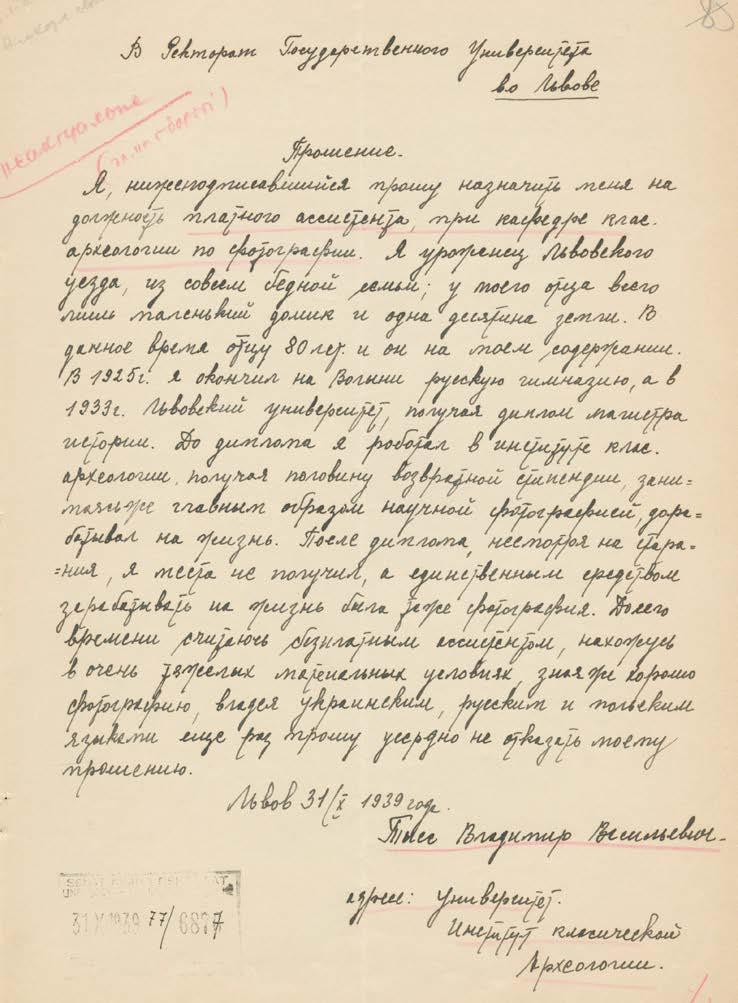 85
В Ректорат Государственного Университета
во Львове
неактуальне
Прошение.
Я, нижеподписавшийся прошу назначить меня на
должность платного ассистента, при кафедре клас.
археологии по фотографии. Я уроженец Львовского
уезда, из совсем бедной семьи; у моего отца всего
лишь маленький домик и одна десятина земли. В
данное время отцу 80 лет и он на моем содержании.
В 1925г. я окончил на Волыни русскую гимназию, а в
1933г. Львовский университет, получая диплом магистра
истории. До диплома я работал в институте клас.
археологии, получая половину возвратной стипендии, зани-
маясьже главным образом научной фотографией, дора=
батывал на жизнь. После диплома, несмотря на стара=
=ния, я места не получил, а единственным средством
зарабатывать на жизнь была тоже фотография. Долго
времени считаюсь безплатным ассистентом, нахожусь
в очень тяжелых материальных условиях, зная же хорошо
фотографию, владея украинским, русским и польским
языками еще раз прошу усердно не отказать моему
прошению.
Львов 31/X 1939 год.
Тисс Владимир Васильевич.
31 X 1939 77/6877
адрес: Университет.
Институт класической
Археологии.